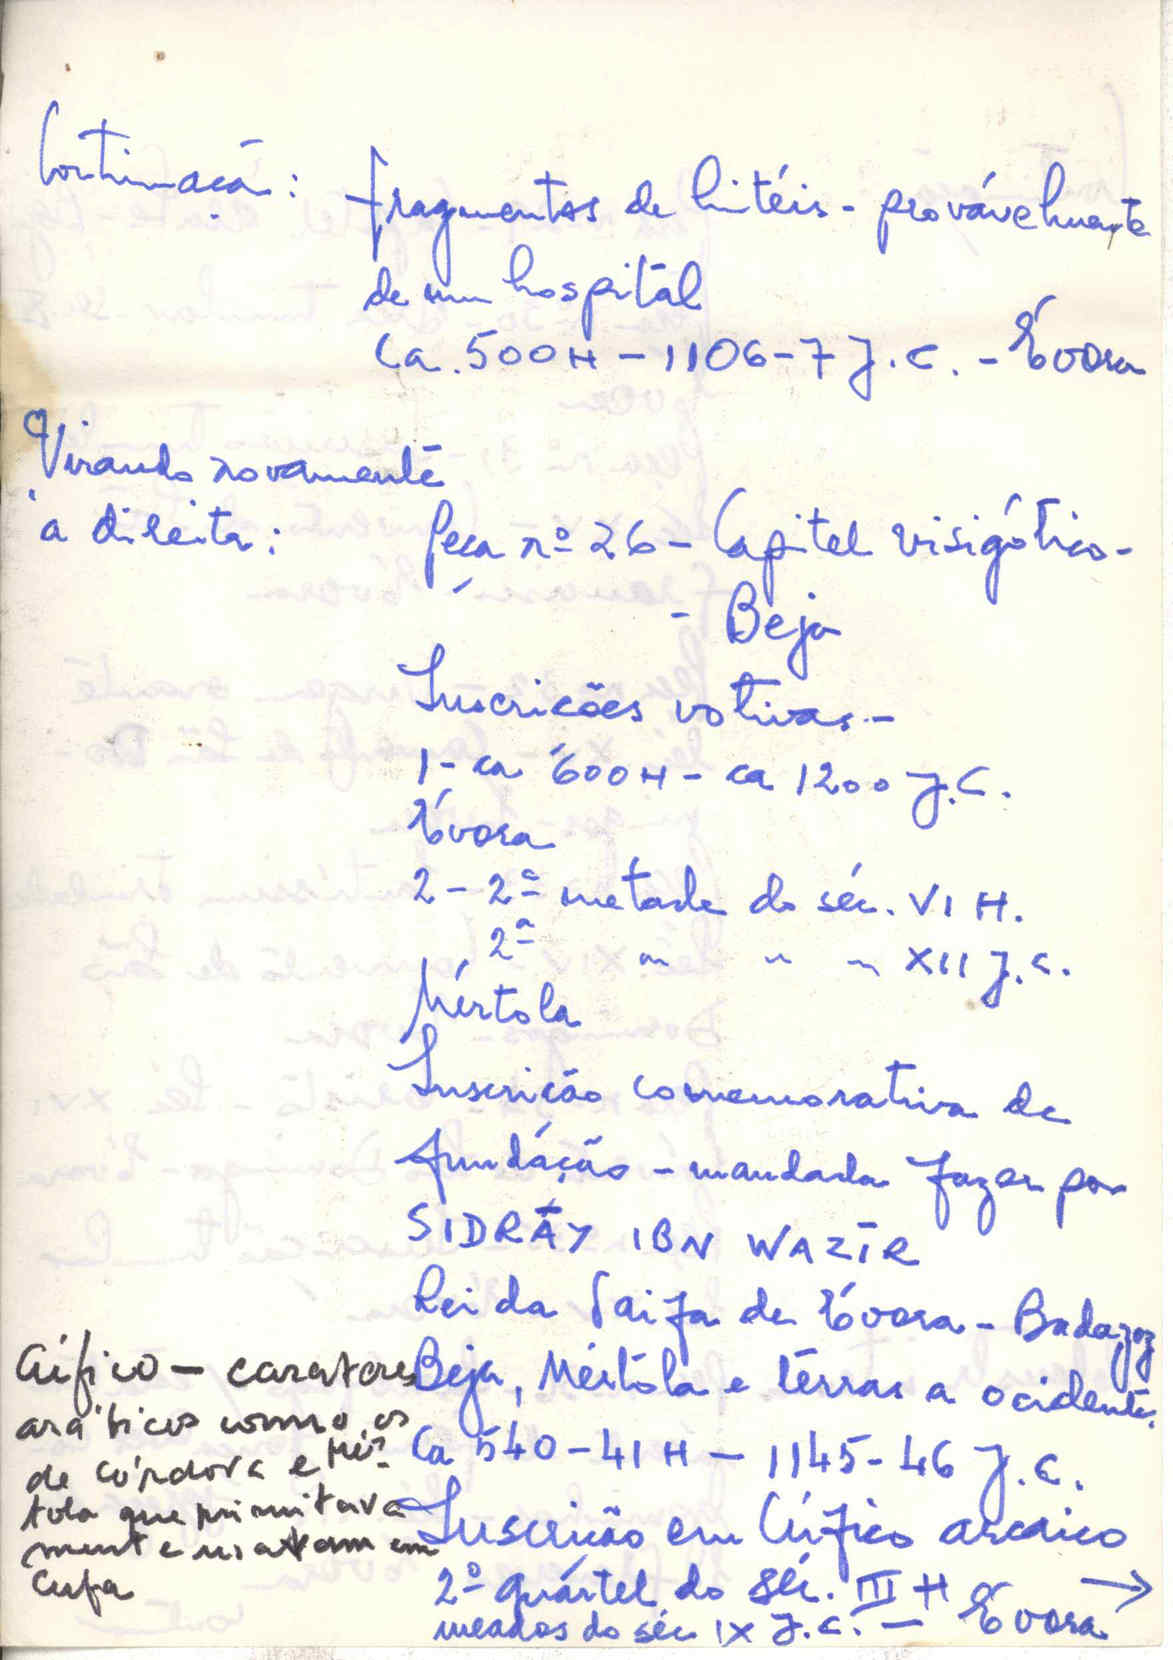 Continuação:
fragmentos de lintéis - provávelmente
de um hospital
Ca. 500H - 1106-7 J.C. - Évora
Virando novamente
a direita:
Peça nº 26 - Capitel visigótico -
- Beja
Inscricões votivas -
1 - ca 600H - ca 1200 J.C.
Évora
2 - 2ª metade do séc. VI H.
2ª " " " XII J.C.
Mértola
Inscrição comemorativa de
fundáção - mandada fazer por
SIDRĀY IBN WAZĪR
Rei da Taifa de Évora - Badajoz
Beja, Mértola e terras a ocidente.
Ca 540-41 H - 1145-46 J.C.
Inscrição em Cúfico arcaico
2º quártel do séc. III H
meados do séc IX J.C. - Évora →
Cúfico - carateres
arábicos como os
de Córdova e Mér-
tola que primitiva
mente usavam em
Cufa